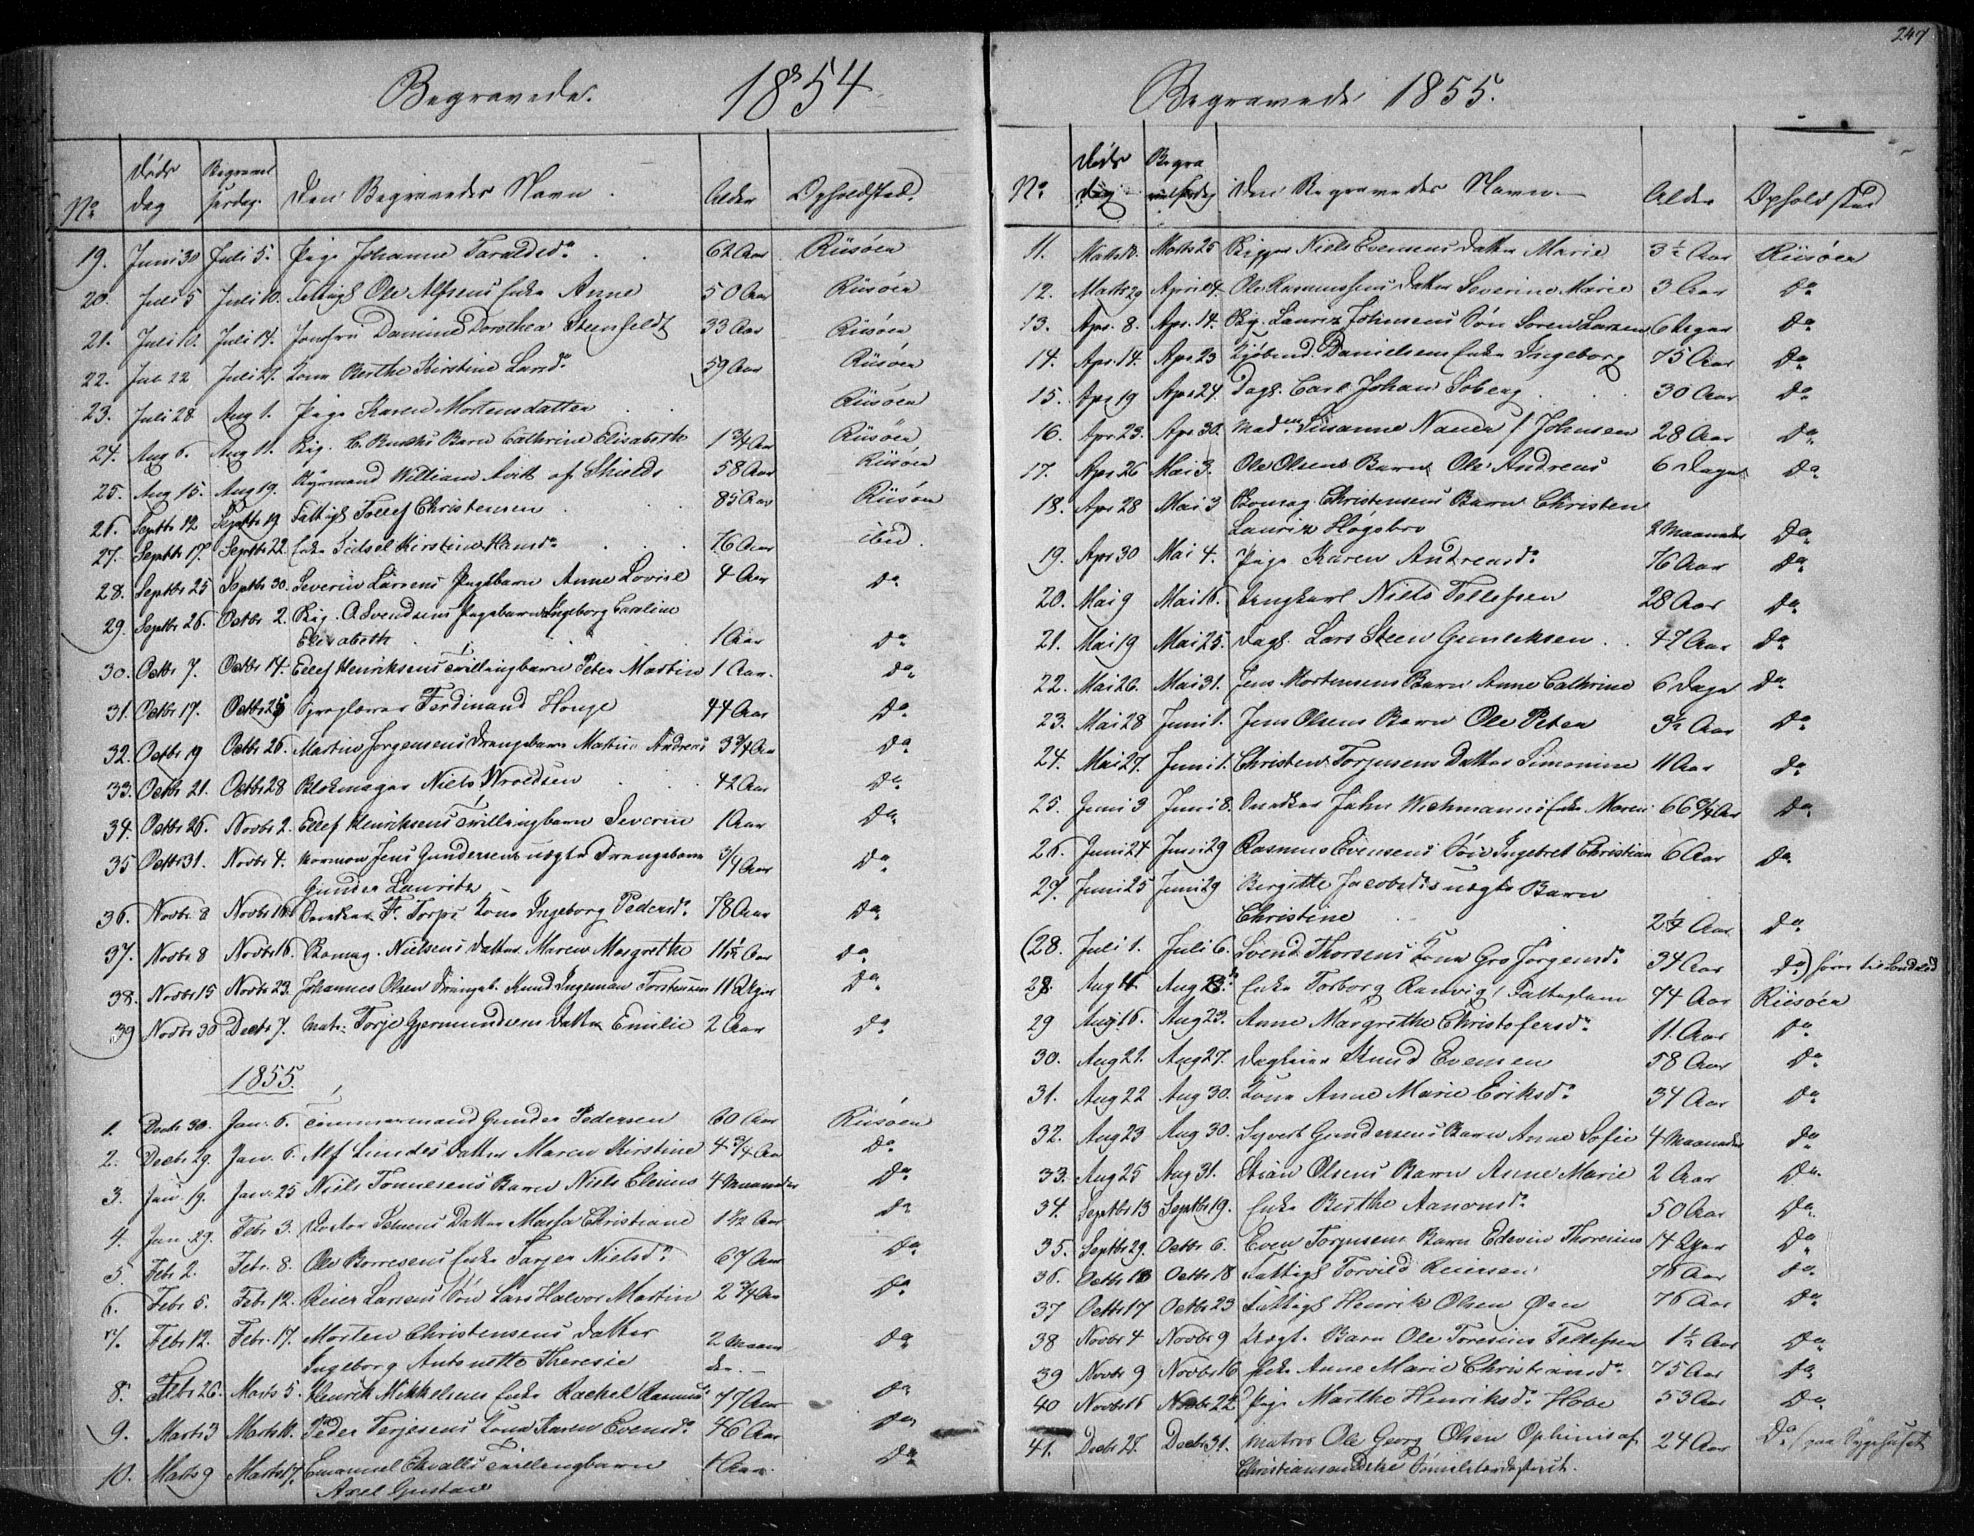 Begravede. 1854
No Døds dag Begravelsesdag. Den Begravedes Navn. Alder Opholdsted.
19. Juni 30 Juli 5. Pige Johanne Taraldsd. 62 Aar Riisøen
20. Juli 5 Juli 10. Fattigl. Ole Alfsens Enke Anne 50 Aar Riisøen
21. Juli 10. Juli 14. Jomfru Damine Dorothea Steenfeldt 33 Aar Riisøen
22. Juli 22 Juli 27. Kone Berthe Kirstine Larsd. 59 Aar Riisøen
23. Juli 28 Aug 1. Pige Karen Mortensdatter Riisøen
24. Aug 6. Aug 11. Barn Cathrine Elisabeth 1 3/4 Aar Riisøen
25. Aug 15. Aug 19. William af Shields 58 Aar Riisøen
26. Septbr 12 Septbr 19 Fattigl. Tollef Christensen 85 Aar Riisøen
27. Septbr 17. Septbr 22. Enke Sidsel Kirstine Hansd. 76 Aar ibid.
28. Septbr 25 Septbr 30. Severin Larsens Pigebarn Anne Lovise 4 Aar Do.
29. Septbr 26. Octbr 2. O. Svendsens Pigebarn Ingeborg Caroline
Elisabeth 1 Aar Do.
30. Octbr 7. Octbr 14. Ellef Henriksens Tvillingbarn Peter Martin 1 Aar. Do.
31. Octbr 17. Octbr 25 Ferdinand Houge 44 Aar Do.
32. Octbr 19 Octbr 26. Martin Jørgensens Drengebarn Andreas 3 3/4 Aar Do.
33. Octbr 21. Octbr 28 Blokmager Niels Wroldsen 42 Aar Do.
34. Octbr 26. Novbr 2. Ellef Henriksens Tvillingbarn Severin 1 Aar Do.
35 Octbr 31. Novbr 4. Jens Gundersens uægte Drengebarn 3/4 Aar Do.
Gunder Lauritz
36. Novbr. 8 Novbr 16 F. Torps Kone Ingeborg Pedersd. 78 Aar Do.
37. Novbr 8 Novbr 16. Nielsens Datter Maren Margrethe 11 1/2 Aar Do.
38. Novbr 15 Novbr 23. Johannes Olsens Drengeb. Knud Ingeman Torstensen 11 Uger Do.
39 Novbr 30 Decbr 7. Matr. Torje Gjermundsens Datter Emilie 2 Aar Do.
1855.
1. Decbr 30. Jan. 6. Tømmermand Gunder Pedersen 60 Aar Riisøen
2. Decbr 29. Jan. 6. Alf Lindes Datter Maren Kirstine 4 3/4 Aar Do.
3. Jan 19. Jan. 25 Niels Tønnesens Barn Niels Elenius 4 Maaneder Do.
4. Jan. 29. Febr 3. Datter Christiane 1 1/2 Aar Do.
5. Febr 2. Febr. 8. Ole Børresens Enke Nielsd. 67 Aar Do.
6. Febr 5. Febr 12. Reier Larsens Søn Lars Halvor Martin 2 3/4 Aar Do.
7. Febr 12. Febr. 17. Morten Christensens Datter 2 Maaneder. Do.
Ingeborg Antonette Theresie
8. Febr 26. Marts 5. Henrik Mikkelsens Enke Rachel Rasmusd. 77 Aar Do.
9. Marts 3 Marts 10. Peder Terjesens Kone Karen Evensd. 46 Aar Do.
10. Marts 9 Marts 17. Emanuel Ekvalls Tvillingbarn 1 Aar. Do.
Axel Gustav
247
Begravede 1855.
No Døds dag Begravelsesdag Den Begravedes Navn. Alder Opholdsted
11. Marts 18. Marts 25 Skipper Niels Evensens Datter Marie 3 1/2 Aar Riisøen
12. Marts 29 April 4. Ole Rasmussens Datter Severine Marie 3 Aar Do
13. Apr. 8. Apr. 14. Lauriz Johnsens Søn Søren Larsen 6 Uger Do.
14. Apr. 14. Apr 23 Kjøbmd. Danielsens Enke Ingeborg 75 Aar Do.
15. Apr 19 Apr 24. Dagl. Carl Johan Soberg 30 Aar Do
16. Apr 23. Apr 30. Madme. Susanne Nauer f. Johnsen 28 Aar Do.
17. Apr 26 Mai 3. Ole Olsens Barn Ole Andreas 6 Dage Do.
18. Apr 28 Mai 3 Christensens Barn Christen
Lauriz Høgebro 2 Maaneder Do.
19. Apr 30 Mai 4. Pige Karen Andreasd. 76 Aar Do.
20. Mai 9 Mai 16. Ungkarl Niels Tellefsen 28 Aar Do.
21. Mai 19 Mai 25. Dagl. Lars Steen Gunleksen 47 Aar Do
22. Mai 26. Mai 31. Jens Mortensens Barn Anne Cathrine 6 Dage Do.
23. Mai 28 Juni 1. Jens Olsens Barn Ole Peter 3 1/2 Aar Do.
24. Mai 27. Juni 1. Christen Torjusens Datter Simonine 11 Aar Do.
25. Juni 3 Juni 8. John Wichmanns Enke Maren 66 3/4 Aar Do.
26. Juni 24 Juni 29 Rasmus Evensens Søn Ingebret Christian 6 Aar Do.
27. Juni 25 Juni 29 Birgitte Jacobsd.s uægte Barn
Christine 2 1/4 Aar Do.
(28. Juli 1. Juli 6. Svend Thorsens Kone Gro Jørgensd. 34 Aar Do.)
28. Aug 4 Aug Enke Torborg Fattiglem 74 Aar Riisøen
29 Aug 16. Aug 23. Anne Margrethe Christofersd. 11 Aar Do.
30. Aug 21. Aug 27. Knud Evensen 58 Aar Do.
31. Aug 22 Aug 30. Kone Anne Marie Eriksd. 34 Aar Do.
32. Aug 23 Aug 30. Syvert Gundersens Barn Anne Sofie 4 Maaneder Do.
33. Aug 25 Aug 31. Stian Olsens Barn Anne Marie 2 Aar Do.
34. Septbr 13 Septbr 19. Enke Berthe Aanonsd. 50 Aar Do.
35. Septbr 29. Octbr 6. Even Torjusens Barn Edevin Thorenius 14 Uger Do
36. Octbr 13 Octbr 18 Fattigl. Torvild Reiersen 78 Aar Do.
37 Octbr 17 Octbr 23 Fattigl. Henrik Olsen Øen 76 Aar Do.
38 Novbr 4 Novbr 9 Uægt. Barn Ole Toresius Tellefsen 1 1/2 Aar Do.
39 Novbr 9 Novbr 16 Enke Anne Marie Christiansd. 75 Aar Do
40 Novbr 16 Novbr 22 Pige Marthe Henriksd. Hobe 53 Aar Do.
41. Decbr 27. Decbr 31. Matros Ole Georg Olsen af 24 Aar Do. (paa Sygehuset
Christiansandske